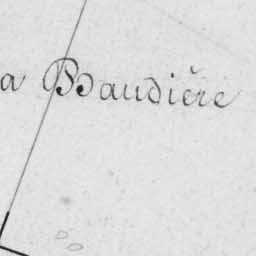 a Baudière